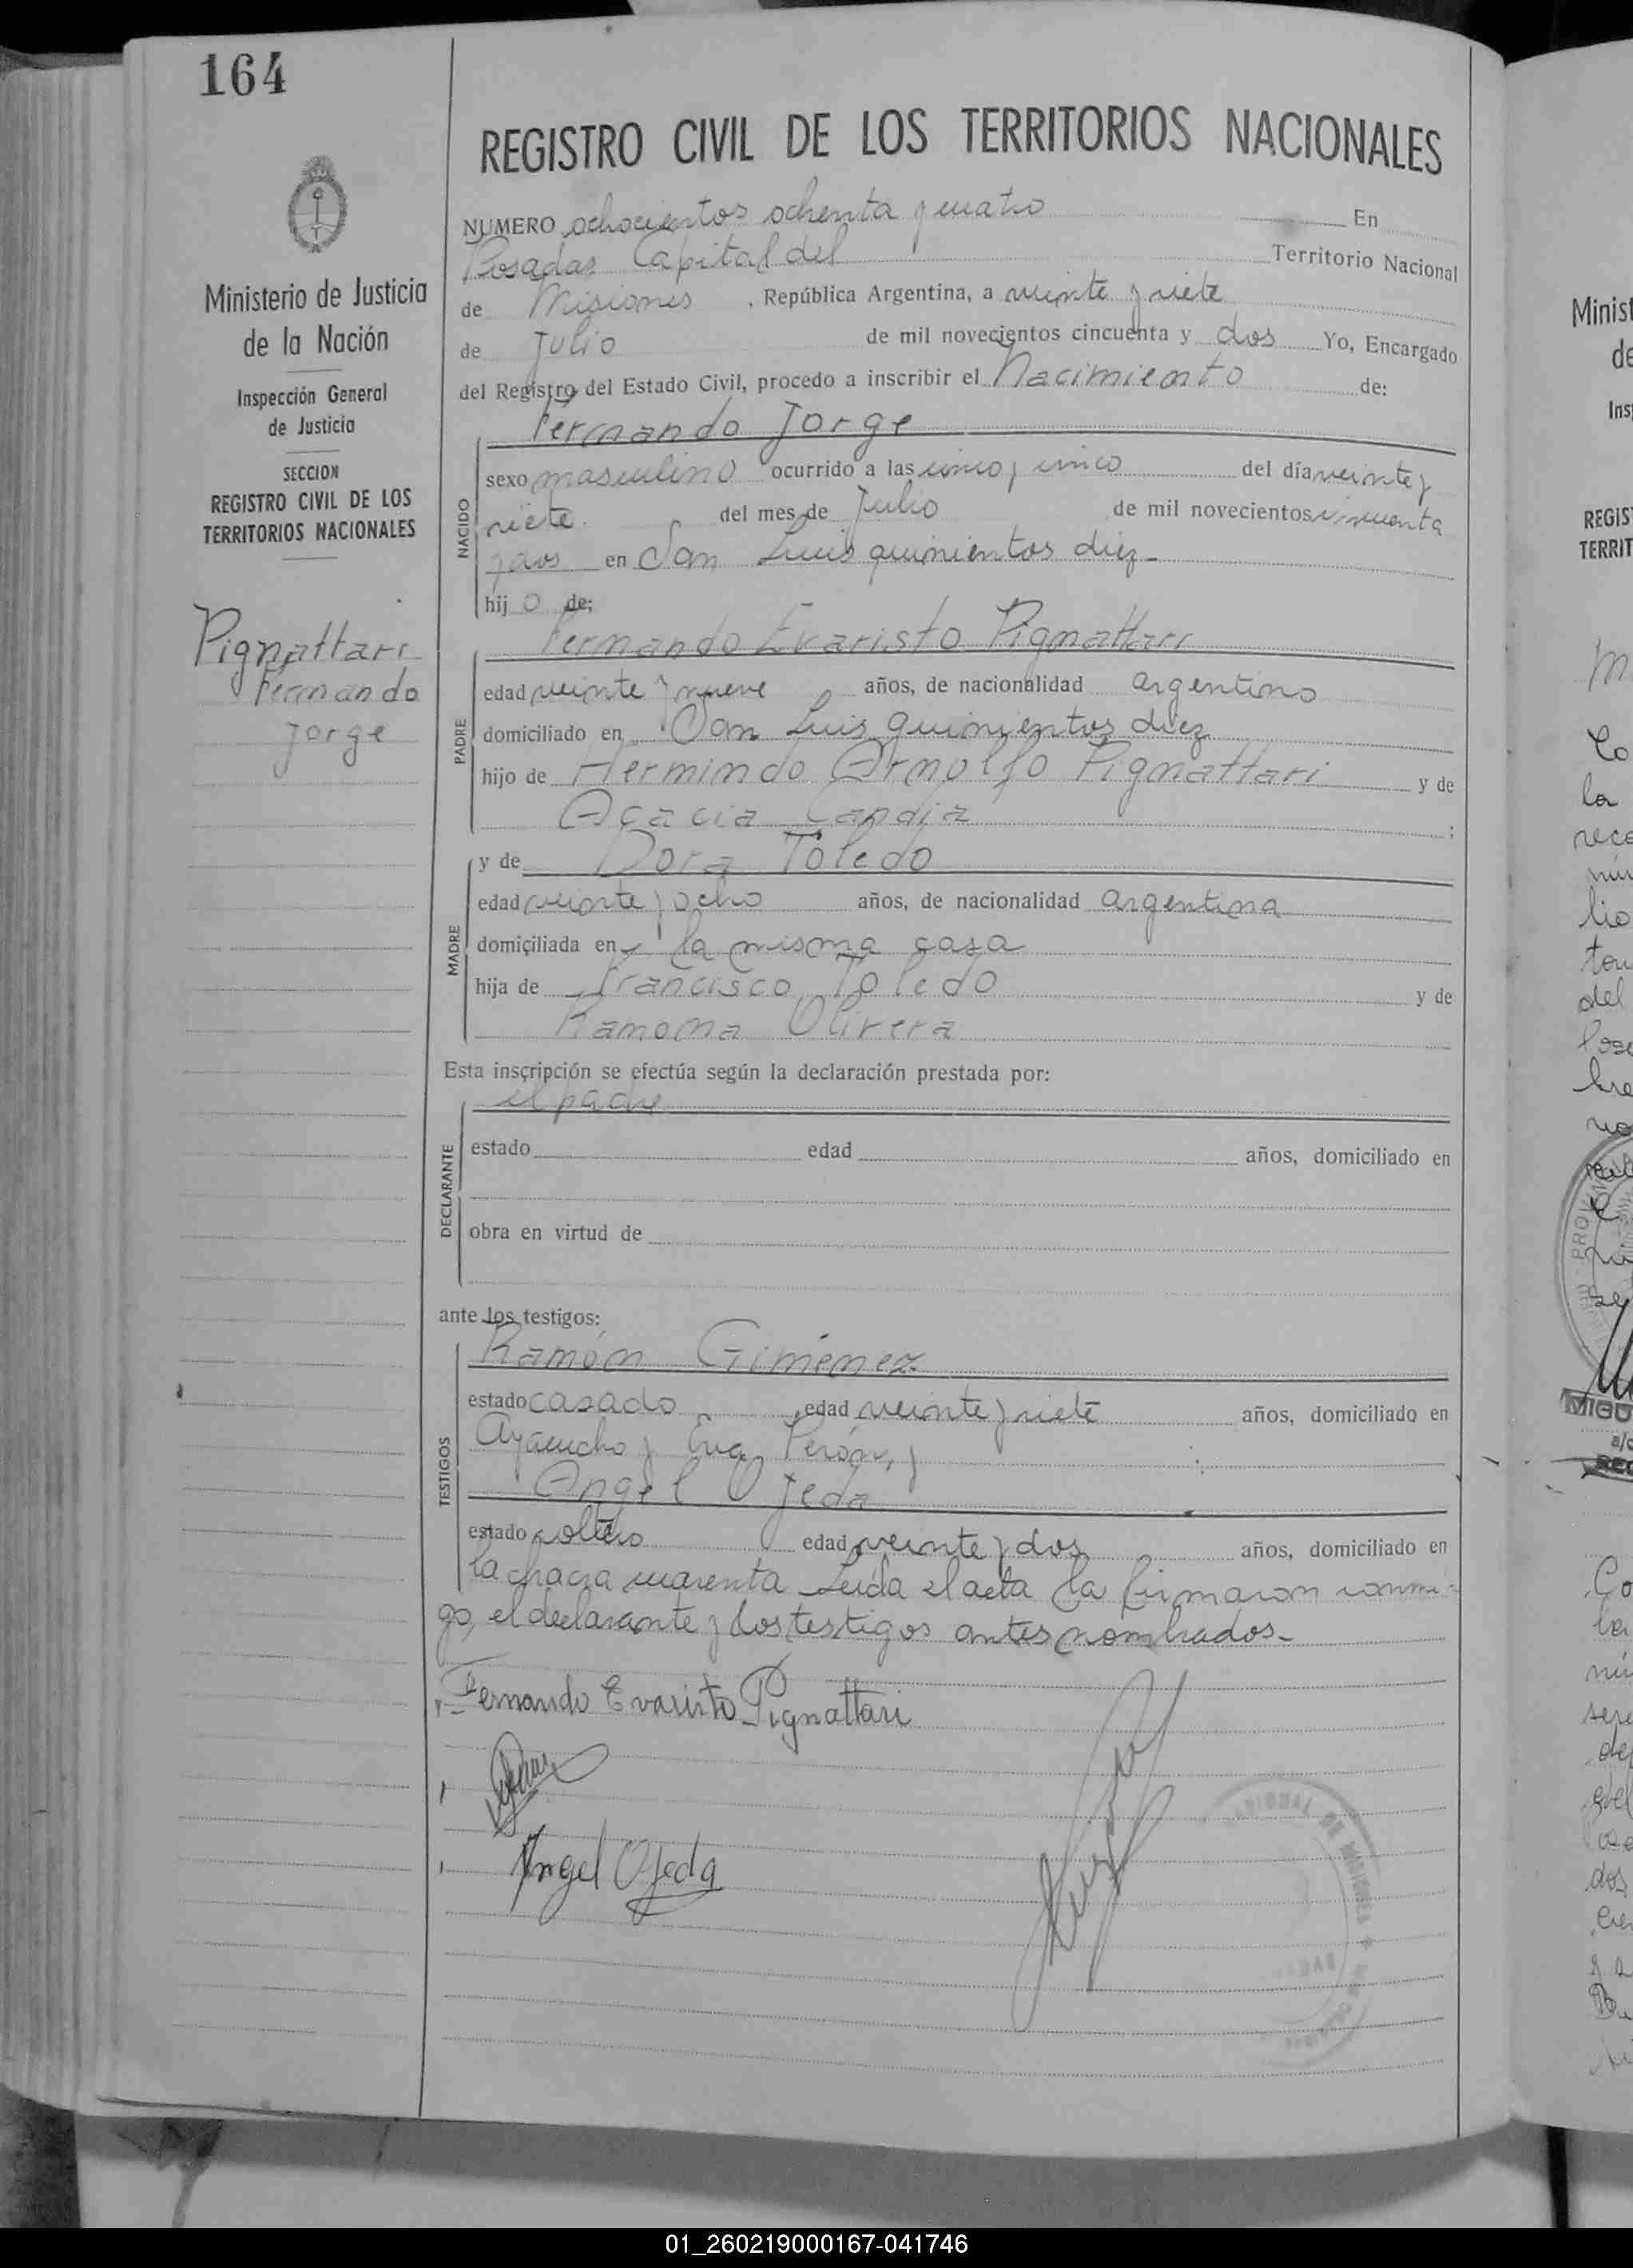 164
REGISTRO CIVIL DE LOS TERRITORIOS NACIONALES
Ministerio de Justicia
de la Nación
Inspección General
de Justicia
SECCION
REGISTRO CIVIL DE LOS
TERRITORIOS NACIONALES
Pignattari
Fernando
Jorge
NUMERO ochocientos ochenta y cuatro En
Posadas Capital del Territorio Nacional
de Misiones . República Argentina, a veinte y siete
de Julio de mil novecientos cincuenta y dos Yo, Encargado
del Registro del Estado Civil, procedo a inscribir el Nacimiento de:
Fernando Jorge
NACIDO
sexo masculino ocurrido a las cinco y cinco del día veinte y
siete del mes de Julio de mil novecientos cincuenta
y dos en San Luis quinientos diez
hijo de;
Fernando Evaristo Pignattari
PADRE
edad veinte y nueve años, de nacionalidad argentino
domiciliado en San Luis quinientos diez
hijo de Hermindo Arnolfo Pignattari y de
Acacia Candia ;
y de Dora Toledo
MADRE
edad veinte y ocho años, de nacionalidad argentina
domiciliada en la misma casa
hija de Francisco Toledo y de
Ramona Olivera
Esta inscripción se efectúa según la declaración prestada por:
el padre
DECLARANTE
estado edad años, domiciliado en
obra en virtud de
ante los testigos:
Ramón Giménez
TESTIGOS
estado casado edad veinte y siete años, domiciliado en
Ayacucho y Eva Perón, y
Angel Ojeda
estado soltero edad veinte y dos años, domiciliado en
la chacra cuarenta Leída el acta la firmaron conmi-
go, el declarante y los testigos antes nombrados.-
Fernando Evaristo Pignattari
Angel Ojeda
DE MISIONES
01_260219000167-041746